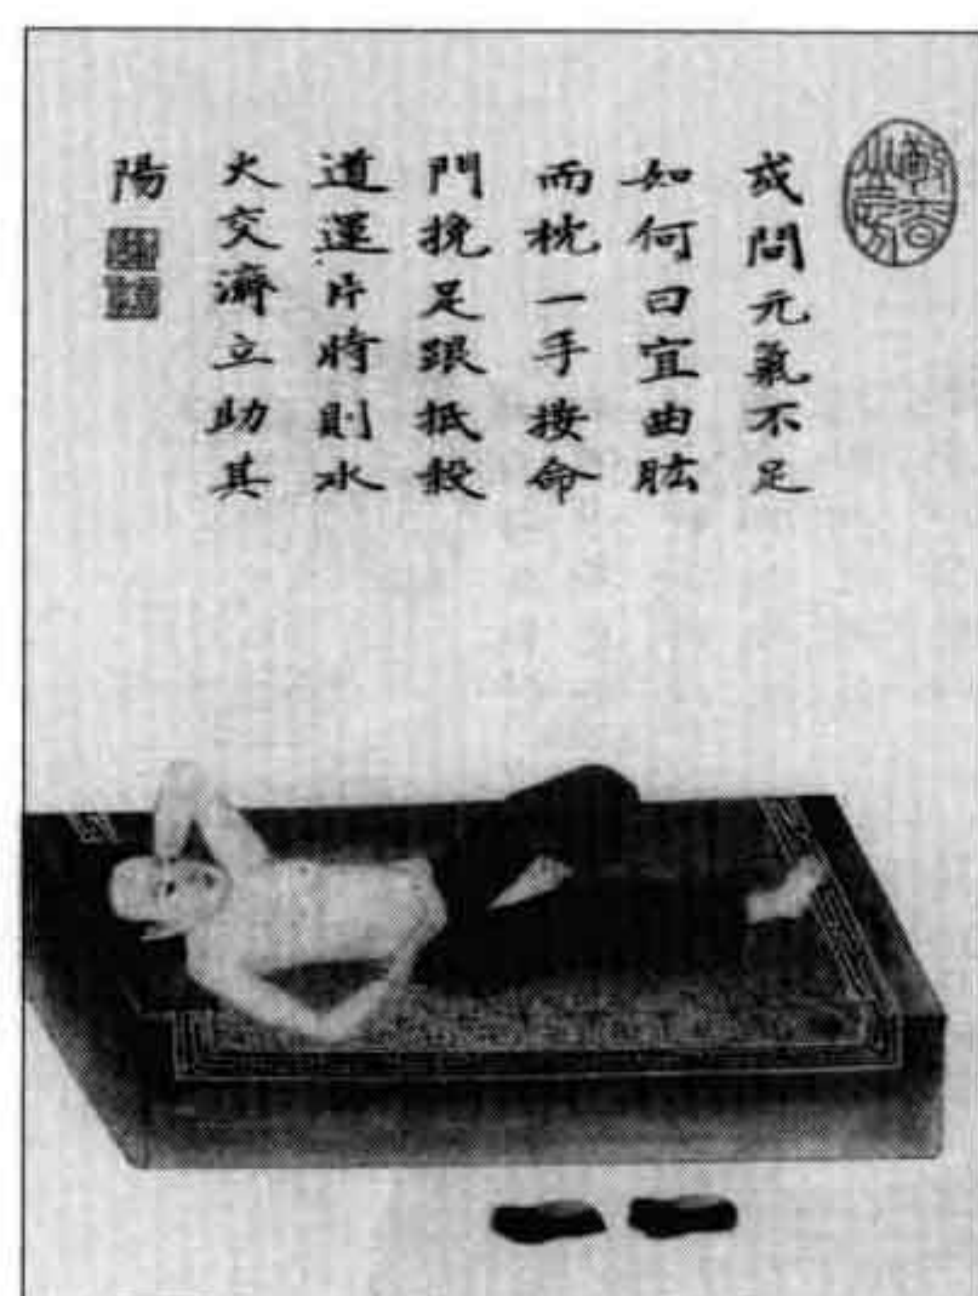 或問元氣不足
如何曰宜曲肱
而枕一手按命
門挽足跟抵穀
道運片時則水
火交濟立助其
陽